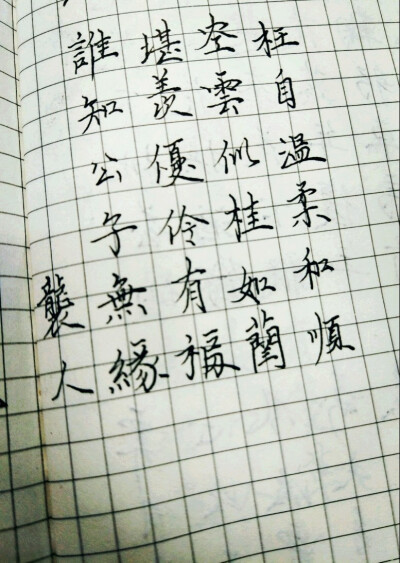 枉自溫柔和順
空雲似桂如蘭
堪羨優伶有福
誰知公子無緣
襲人